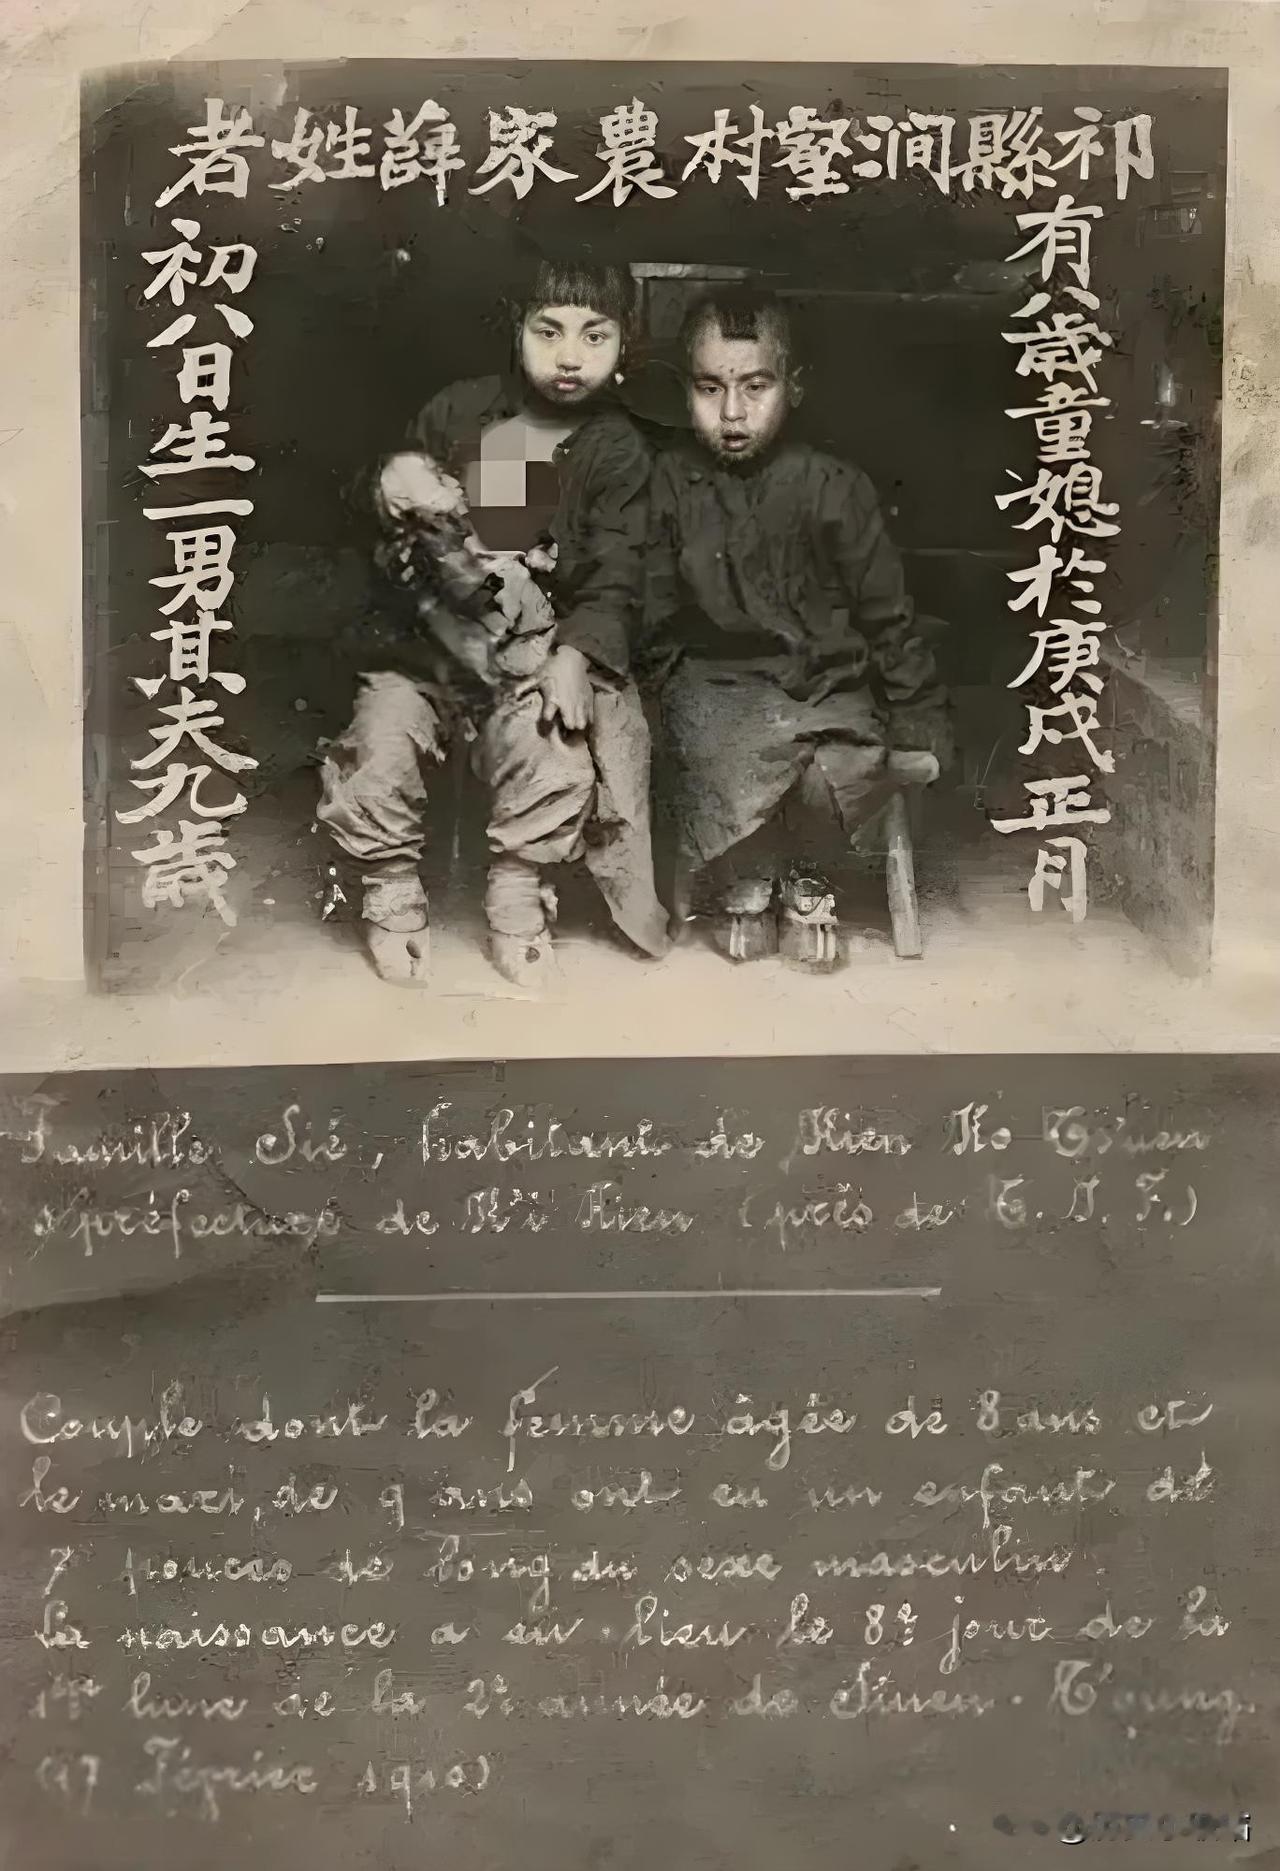 祁縣澗壑村農家薛姓者
有八歲童媳於庚戌正月
初八日生一男其夫九歲
Famille Sié, habitant de Kien Ho Ts'uen
s/préfecture de K'i Hien (près de T. I. F.)
Couple dont la femme âgée de 8 ans et
le mari, de 9 ans ont eu un enfant de
7 pouces de long, du sexe masculin.
La naissance a eu lieu le 8e jour de la
1re lune de la 2e année de Siuen-T'oung
(17 Février 1910)